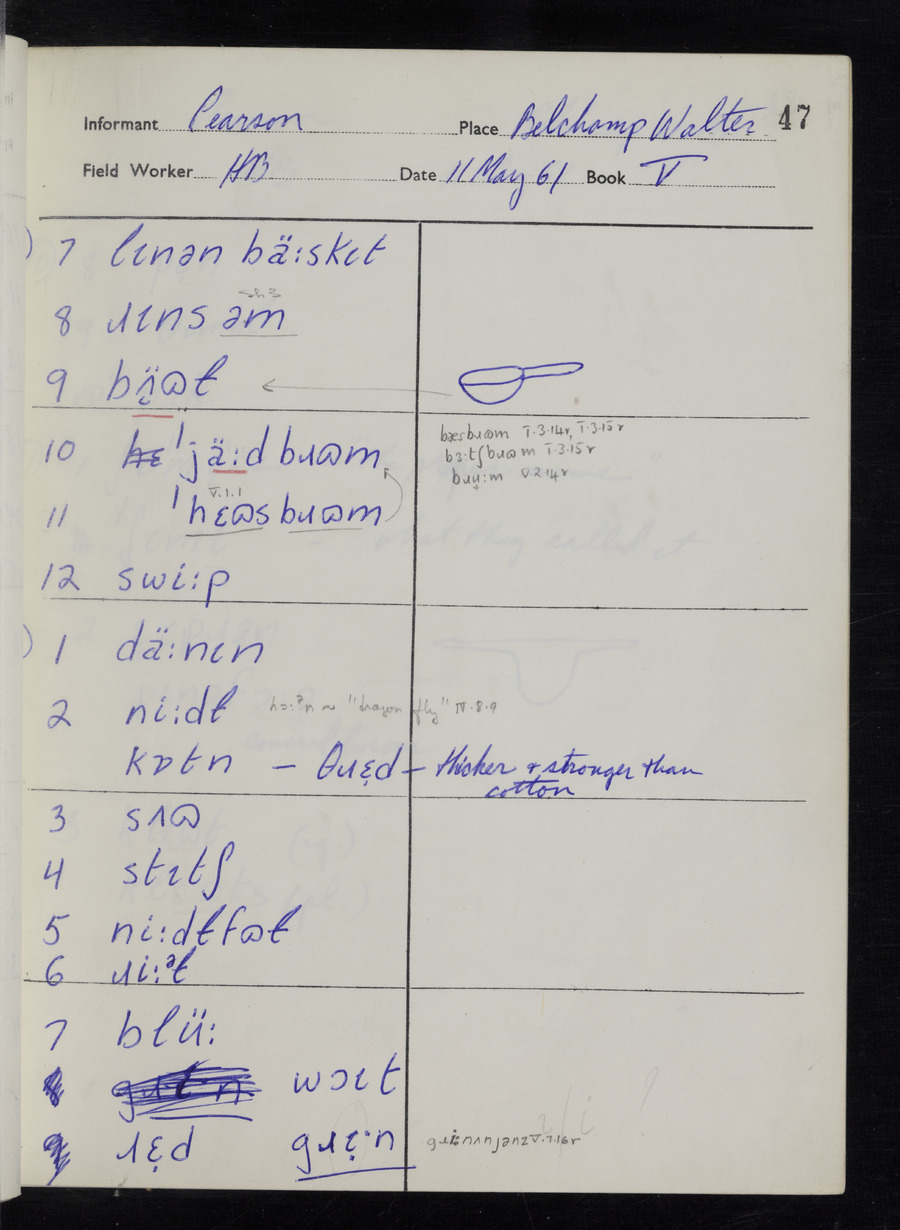 Informant Pearson Place Belchamp Walter 47
Field Worker HB Date 11 May 61 Book V
7 lɪnən bä:skɪt
8 ɹɪns əm
9 bʌ̈ɷt
10 ˈjä:d bɹɷm
bæsbɹɷm I.3.14r, I.3.15r
bɜ:tʃbɹɷm I.3.15r
V.2.14r
V.1.1
11 ˈhɛɷs bɹɷm
12 swi:p
1 dä:nɪn
2 ni:dɫ
"dragon fly" IV.8.9
kɒtn – θɹɛ̣d – thicker & stronger than
cotton
3 sʌɷ
4 stɪtʃ
5 ni:dɫfɷɫ
6 ɹi:ᵊɫ
7 blü:
wɔɪt
ɹɛ̣d gɹɪ:n
V.7.16r